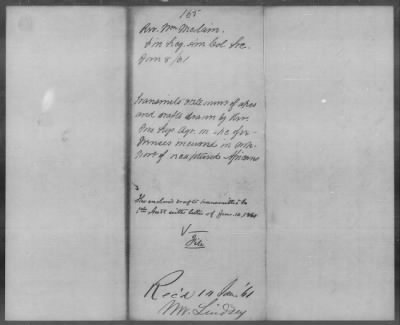 165
Rev. Wm McLain
Fin Sec. Am Col Soc.
Jan 8/61
Transmits statement of
and drafts drawn by Rev.
Jno Seys Agt. in
incurred in
port of recaptured Africans
The enclosed drafts transmitted to
5th Aud. with letter of Jan. 10, 1861
File
Rec'd 10 Jan '61
Mr. Lindsey